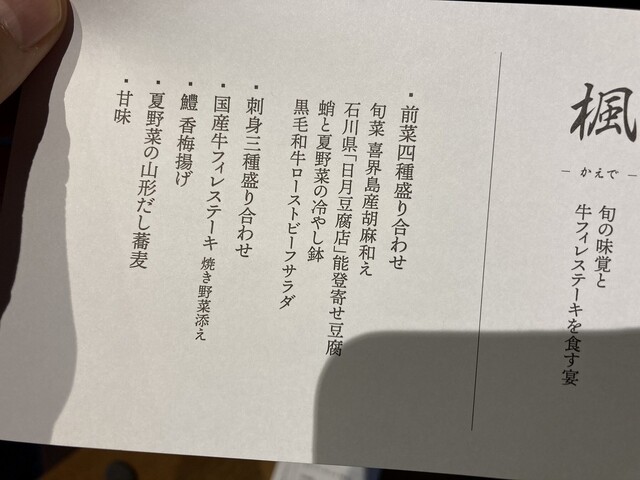 楓
－ かえで －
旬の味覚と
牛フィレステーキを食す宴
・前菜四種盛り合わせ
旬菜 喜界島産胡麻和え
石川県「日月豆腐店」能登寄せ豆腐
蛸と夏野菜の冷やし鉢
黒毛和牛ローストビーフサラダ
・刺身三種盛り合わせ
・国産牛フィレステーキ 焼き野菜添え
・鱧 香梅揚げ
・夏野菜の山形だし蕎麦
・甘味